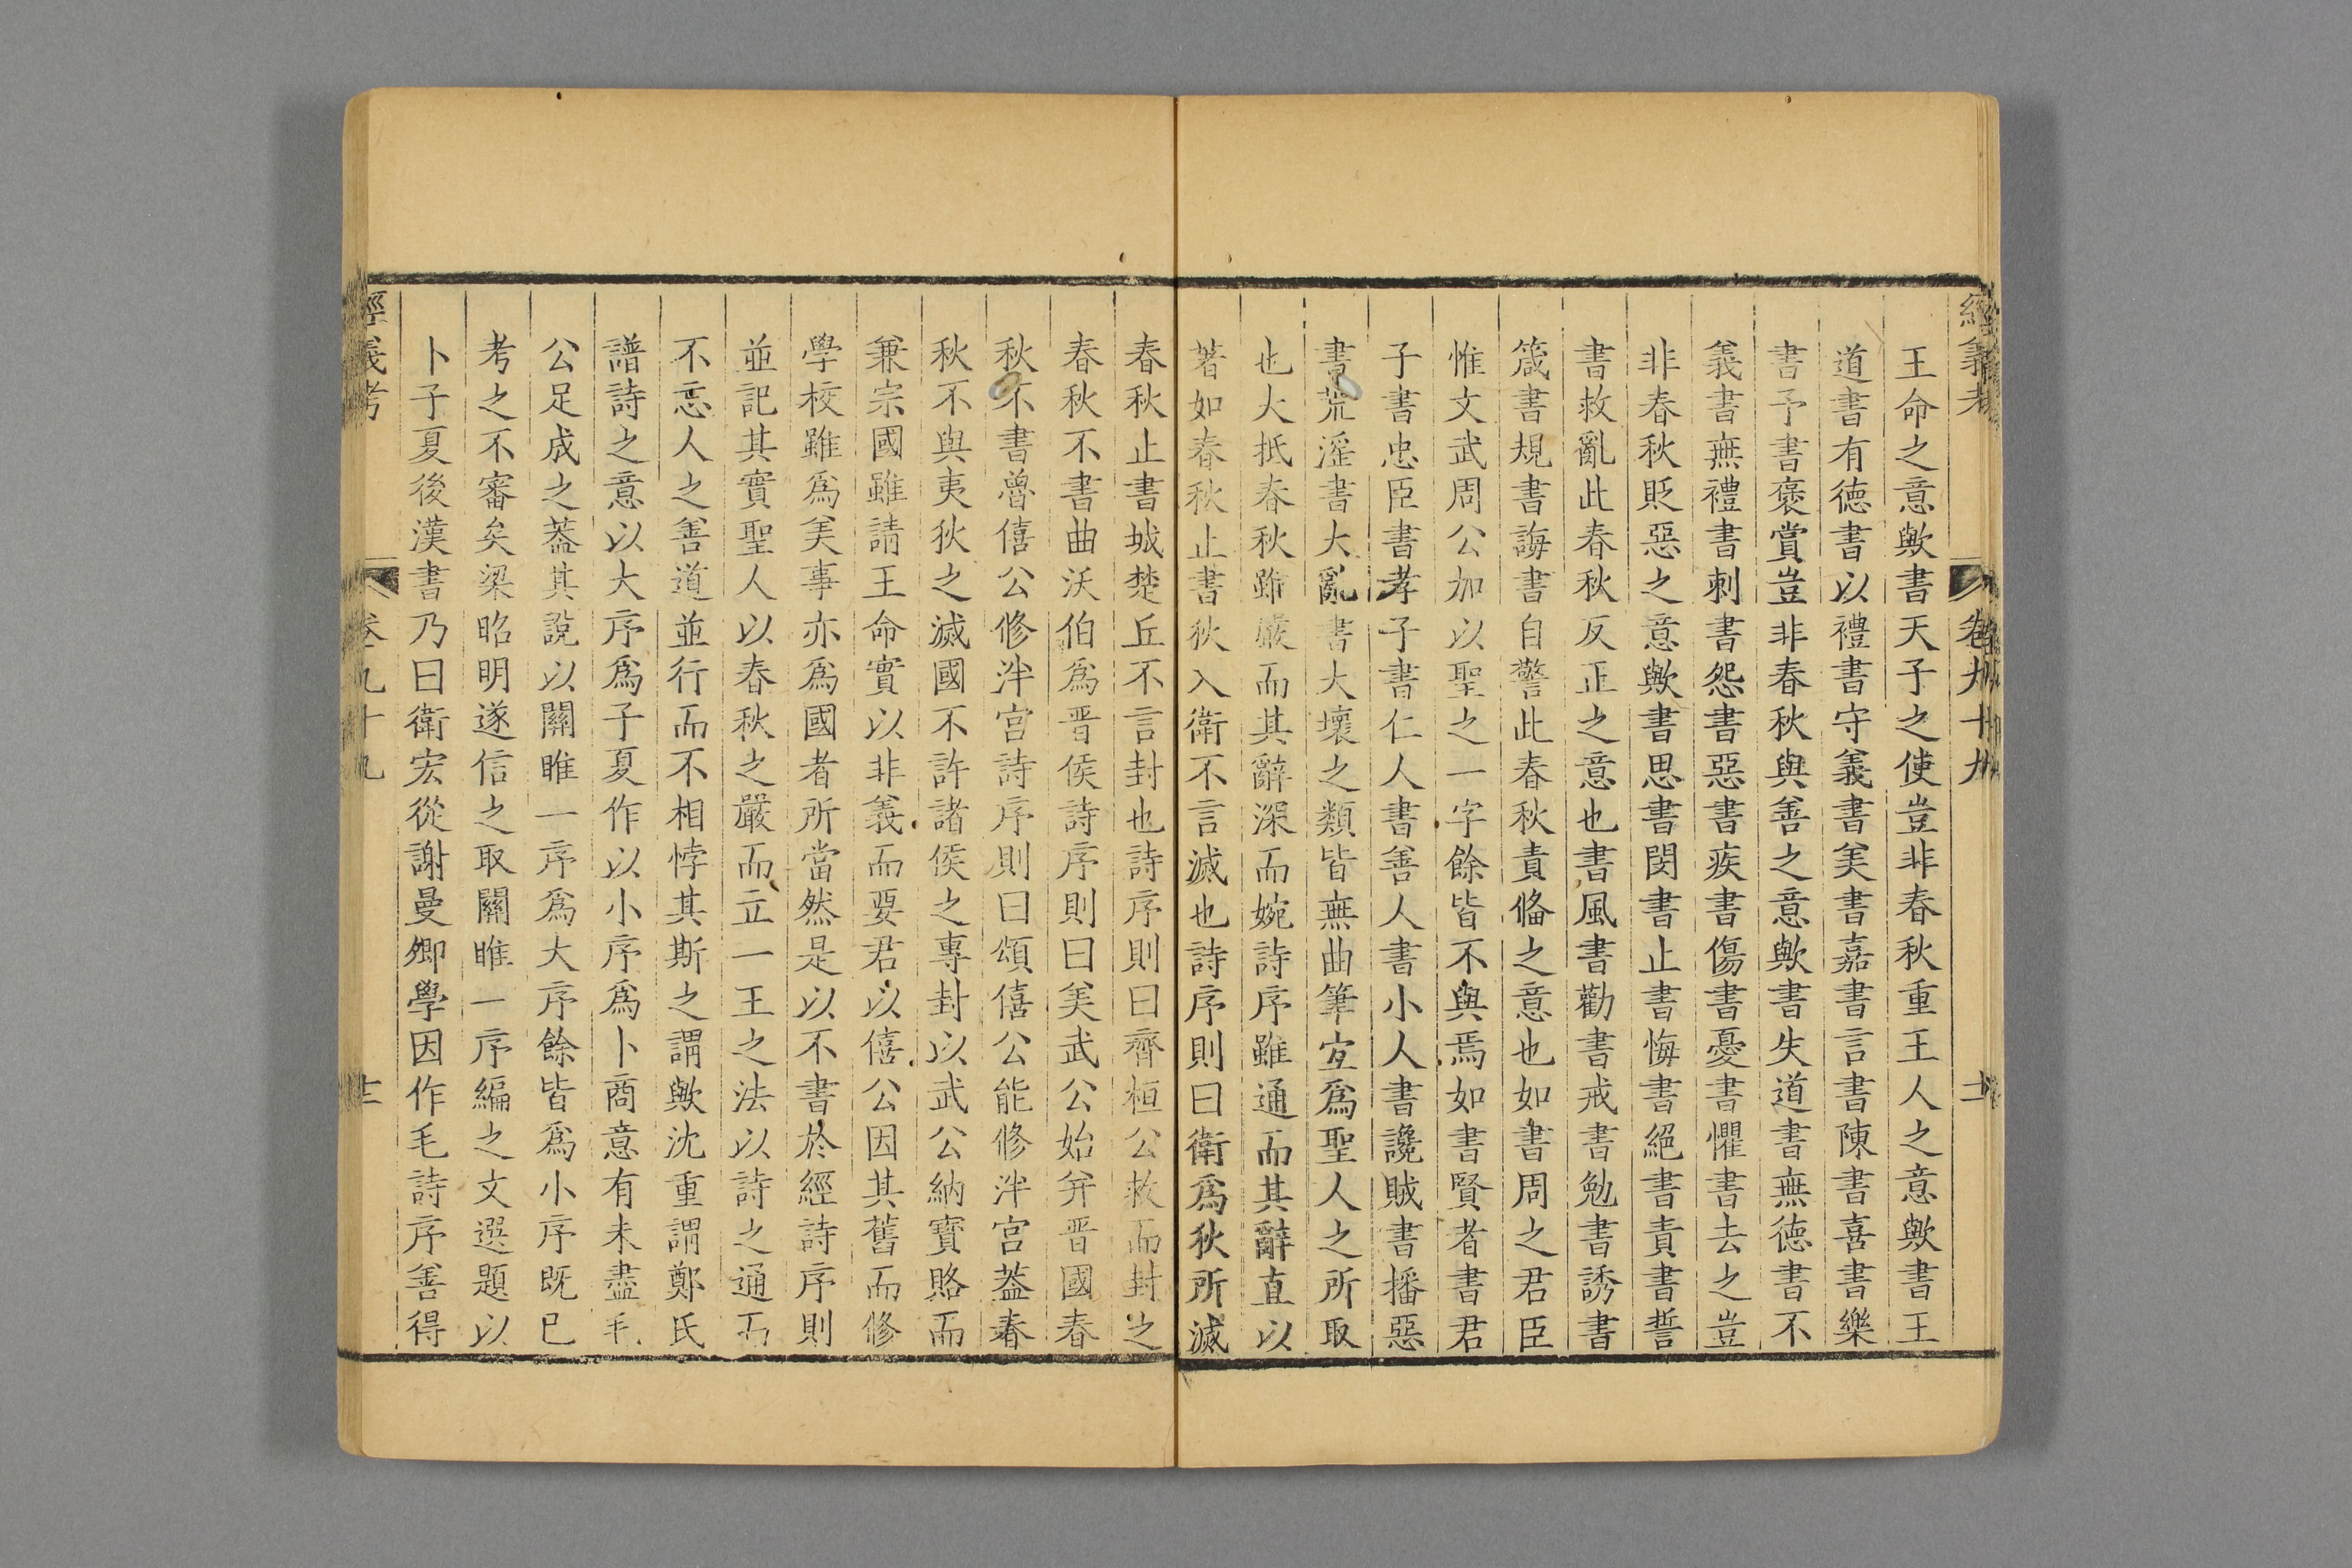 經義考
卷九十九
王命之意歟書天子之使豈非春秋重王人之意歟書王
道書有德書以禮書守義書美書嘉書言書陳書喜書樂
書予書褒賞豈非春秋與善之意歟書失道書無德書不
義書無禮書刺書怨書惡書疾書傷書憂書懼書去之豈
非春秋貶惡之意歟書思書閔書止書悔書絕書責書誓
書救亂此春秋反正之意也書風書勸書戒書勉書誘書
箴書規書誨書自警此春秋責備之意也如書周之君臣
惟文武周公加以聖之一字餘皆不與焉如書賢者書君
子書忠臣書孝子書仁人書善人書小人書讒賊書播惡
書荒淫書大亂書大壞之類皆無曲筆宜爲聖人之所取
也大抵春秋雖嚴而其辭深而婉詩序雖通而其辭直以
著如春秋止書狄入衛不言滅也詩序則曰衛爲狄所滅
春秋止書城楚丘不言封也詩序則曰齊桓公救而封之
春秋不書曲沃伯爲晉侯詩序則曰美武公始并晉國春
秋不書魯僖公修泮宮詩序則曰頌僖公能修泮宮蓋春
秋不與夷狄之滅國不許諸侯之專封以武公納寶賂而
兼宗國雖請王命實以非義而要君以僖公因其舊而修
學校雖爲美事亦爲國者所當然是以不書於經詩序則
並記其實聖人以春秋之嚴而立一王之法以詩之通而
不忘人之善道並行而不相悖其斯之謂歟沈重謂鄭氏
譜詩之意以大序爲子夏作以小序爲卜商意有未盡毛
公足成之葢其說以關雎一序爲大序餘皆爲小序既已
考之不審矣梁昭明遂信之取關雎一序編之文選題以
卜子夏後漢書乃曰衛宏從謝曼卿學因作毛詩序善得
經義考
卷九十九